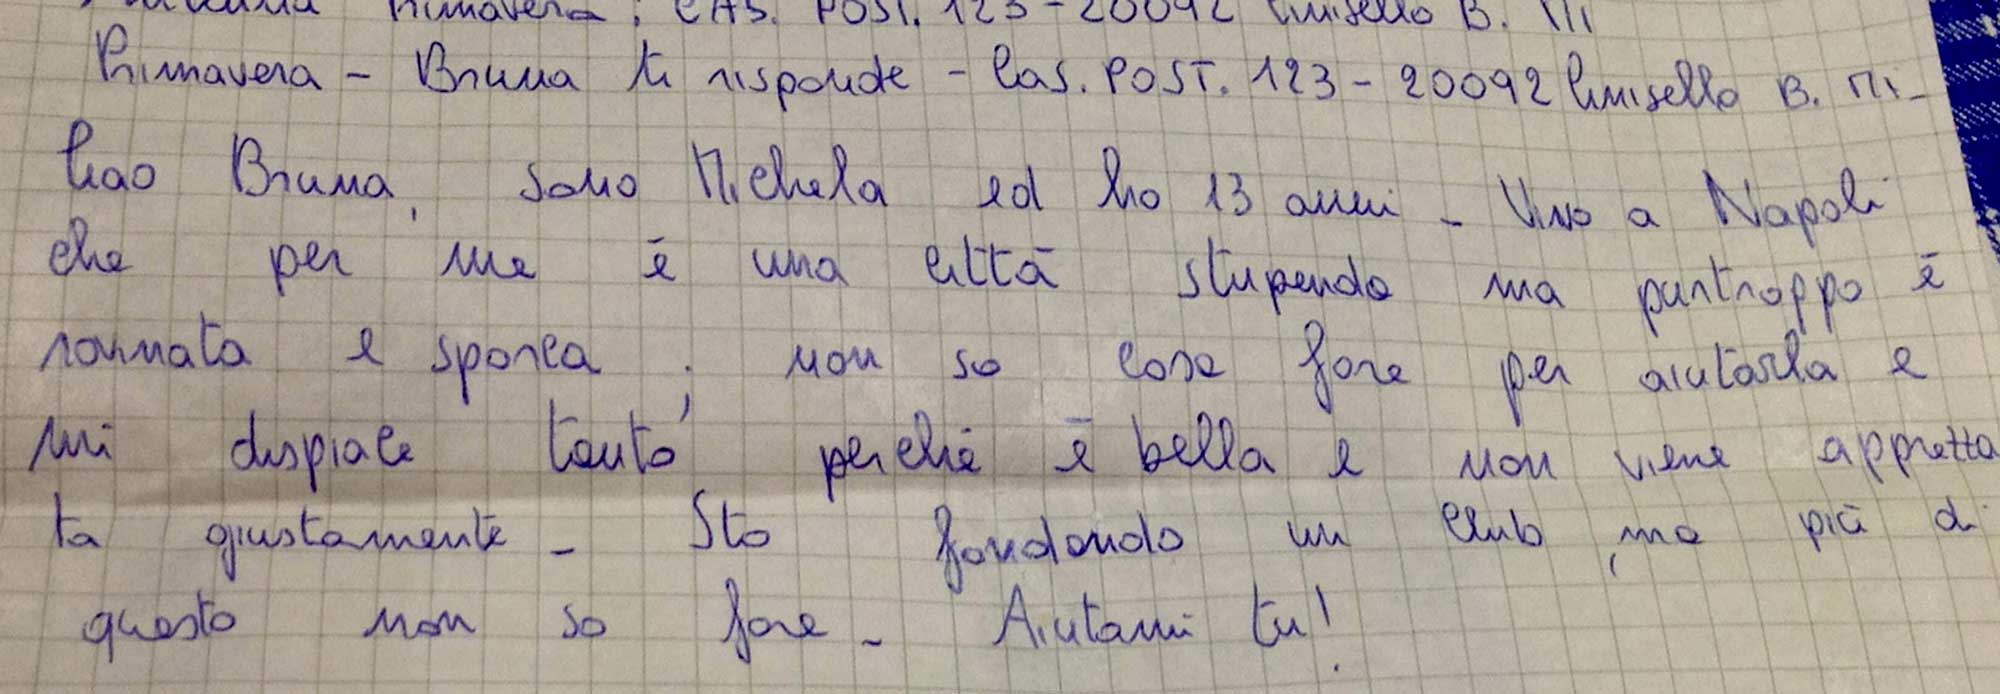 Primavera; CAS. POST. 123 - 20092 Cinisello B. MI
Primavera - Bruna ti risponde - Cas. POST. 123 - 20092 Cinisello B. Mi -
Ciao Bruna, sono Michela ed ho 13 anni - Vivo a Napoli
che per me è una città stupenda ma purtroppo è
rovinata e sporca; non so cosa fare per aiutarla e
mi dispiace tanto perché è bella e non viene apprezza
ta giustamente - Sto fondando un club, ma più di
questo non so fare - Aiutami tu!